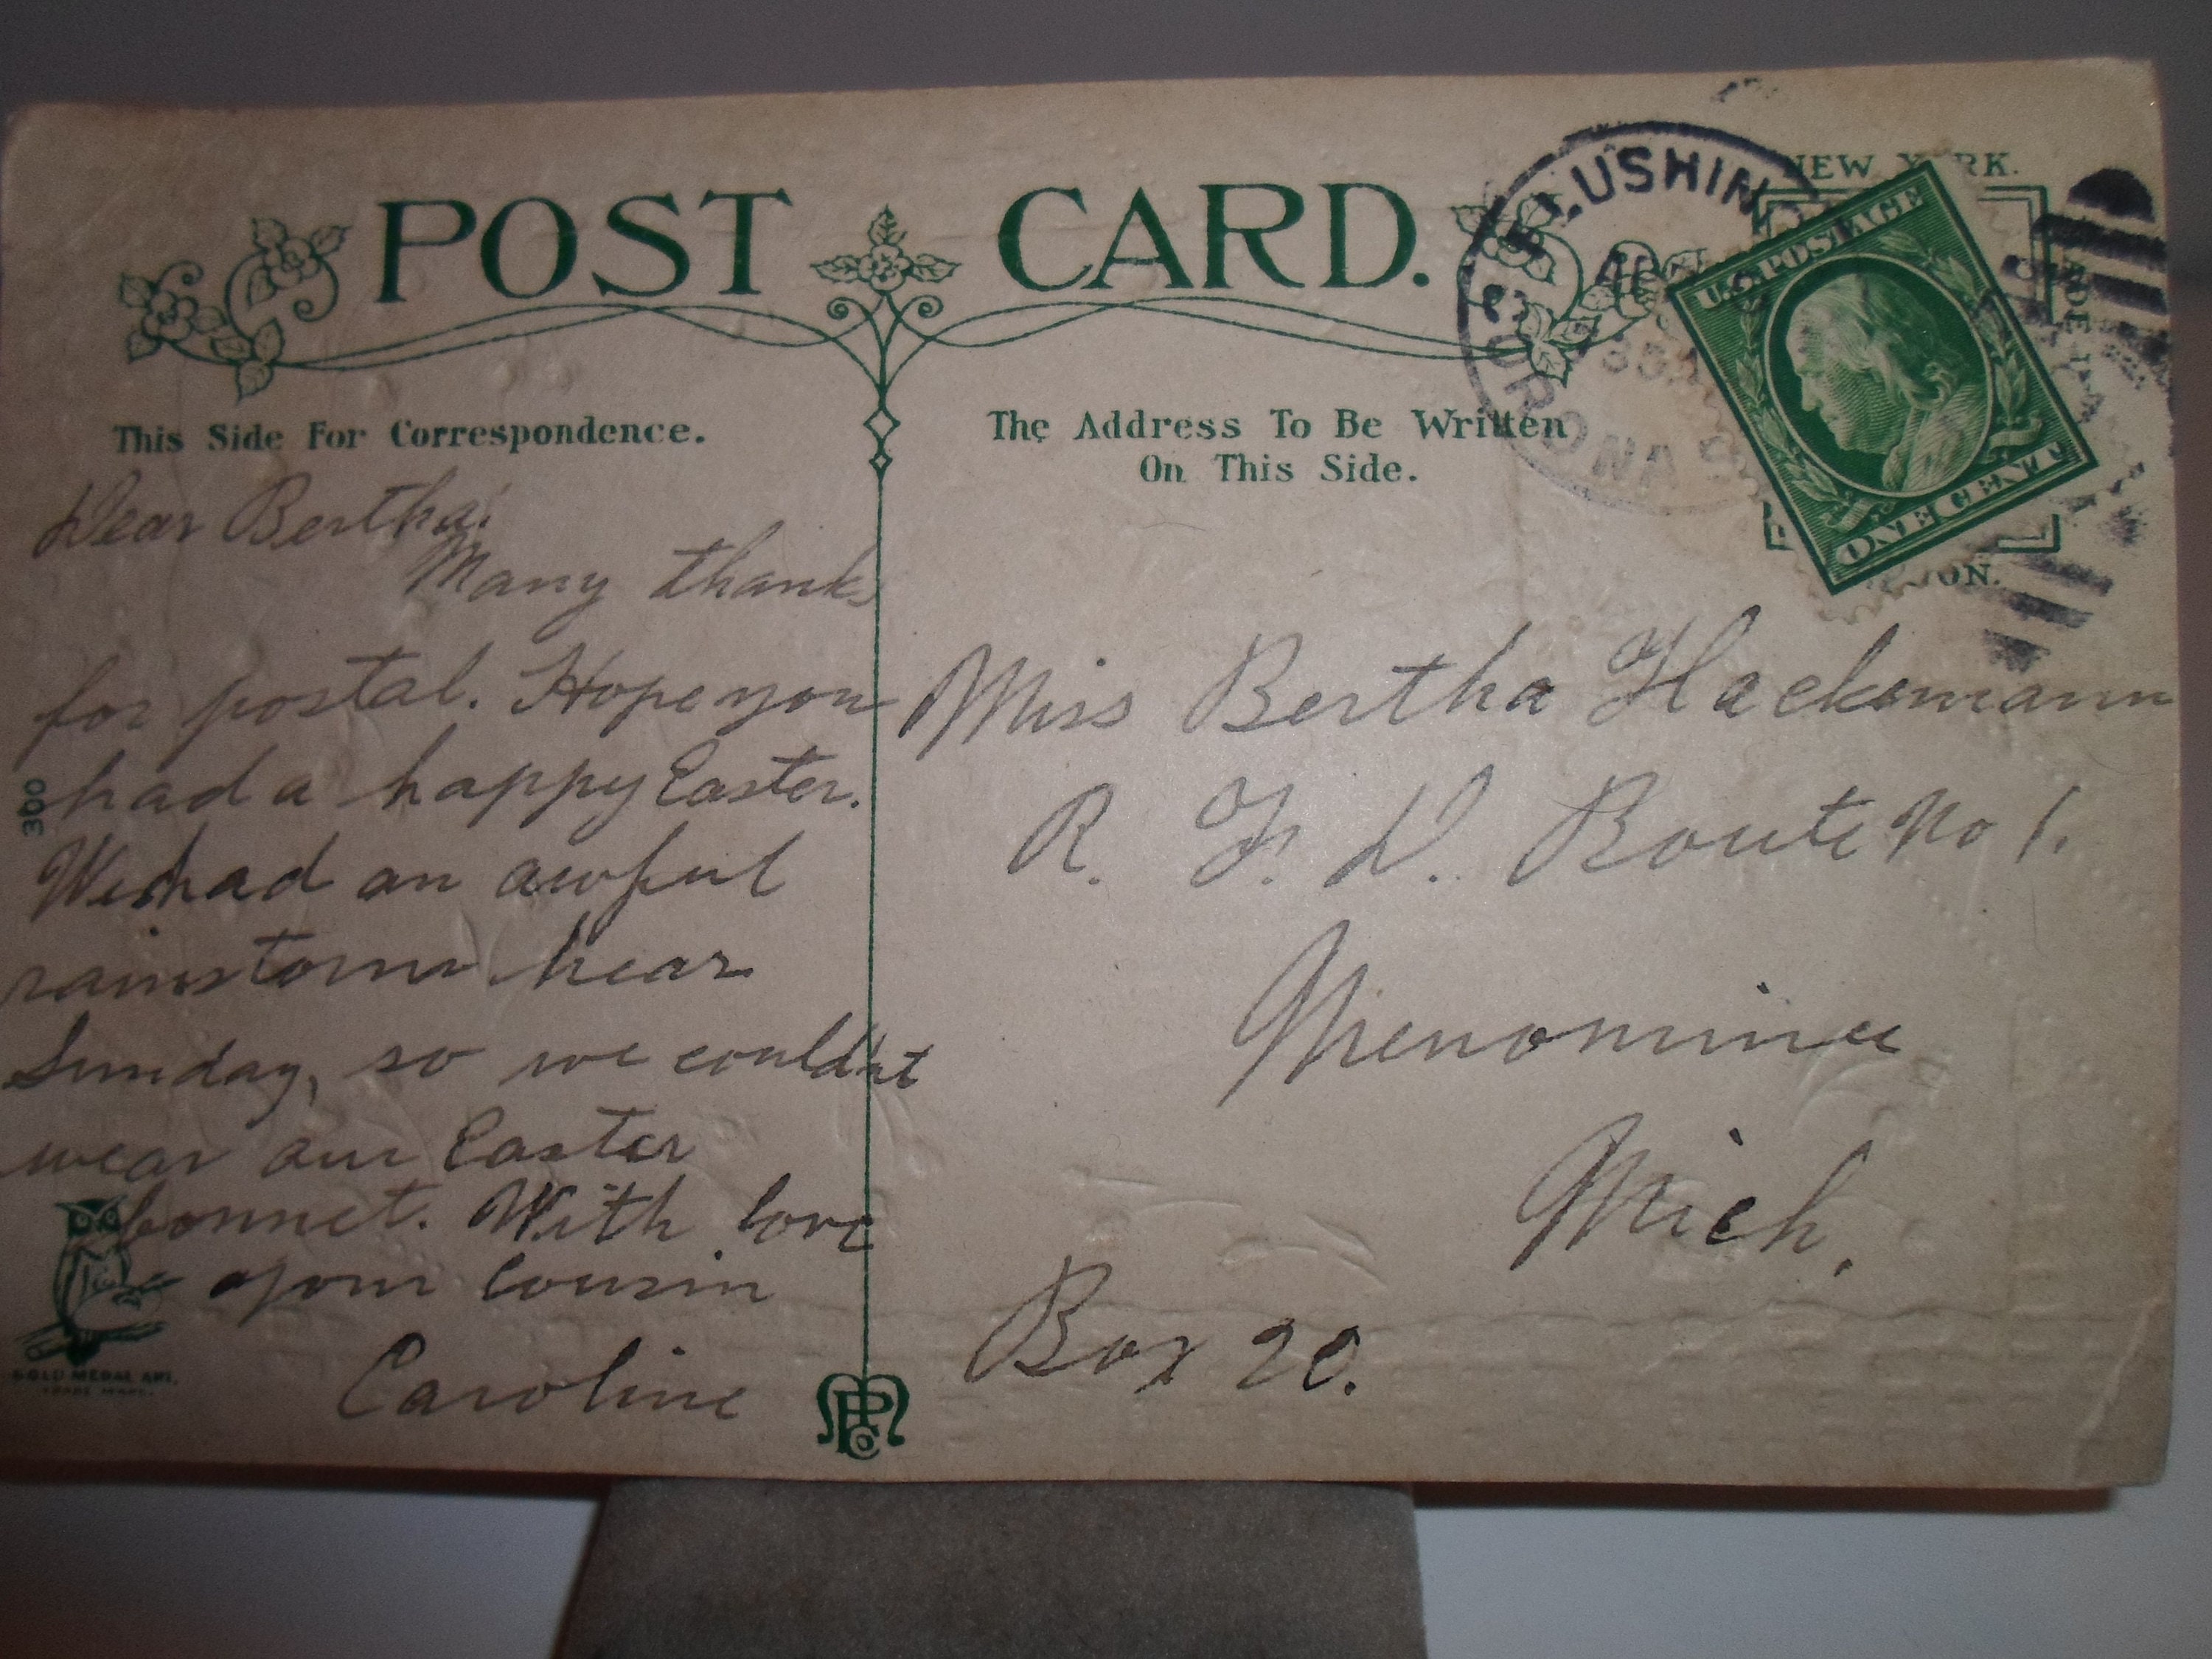 POST CARD.
FLUSHING
CORONA
NEW YORK.
U.S. POSTAGE
ONE CENT
ON.
This Side For Correspondence.
The Address To Be Written
On This Side.
Dear Bertha!
Many thanks
for postal. Hope you
had a happy Easter.
We had an awful
rainstorm hear
Sunday, so we could'nt
wear our Easter
bonnet. With love
your cousin
Caroline
300
GOLD MEDAL ART.
TRADE MARK.
Miss Bertha Hackemann
R. F. D. Route No 1.
Menominee
Mich.
Box 20.